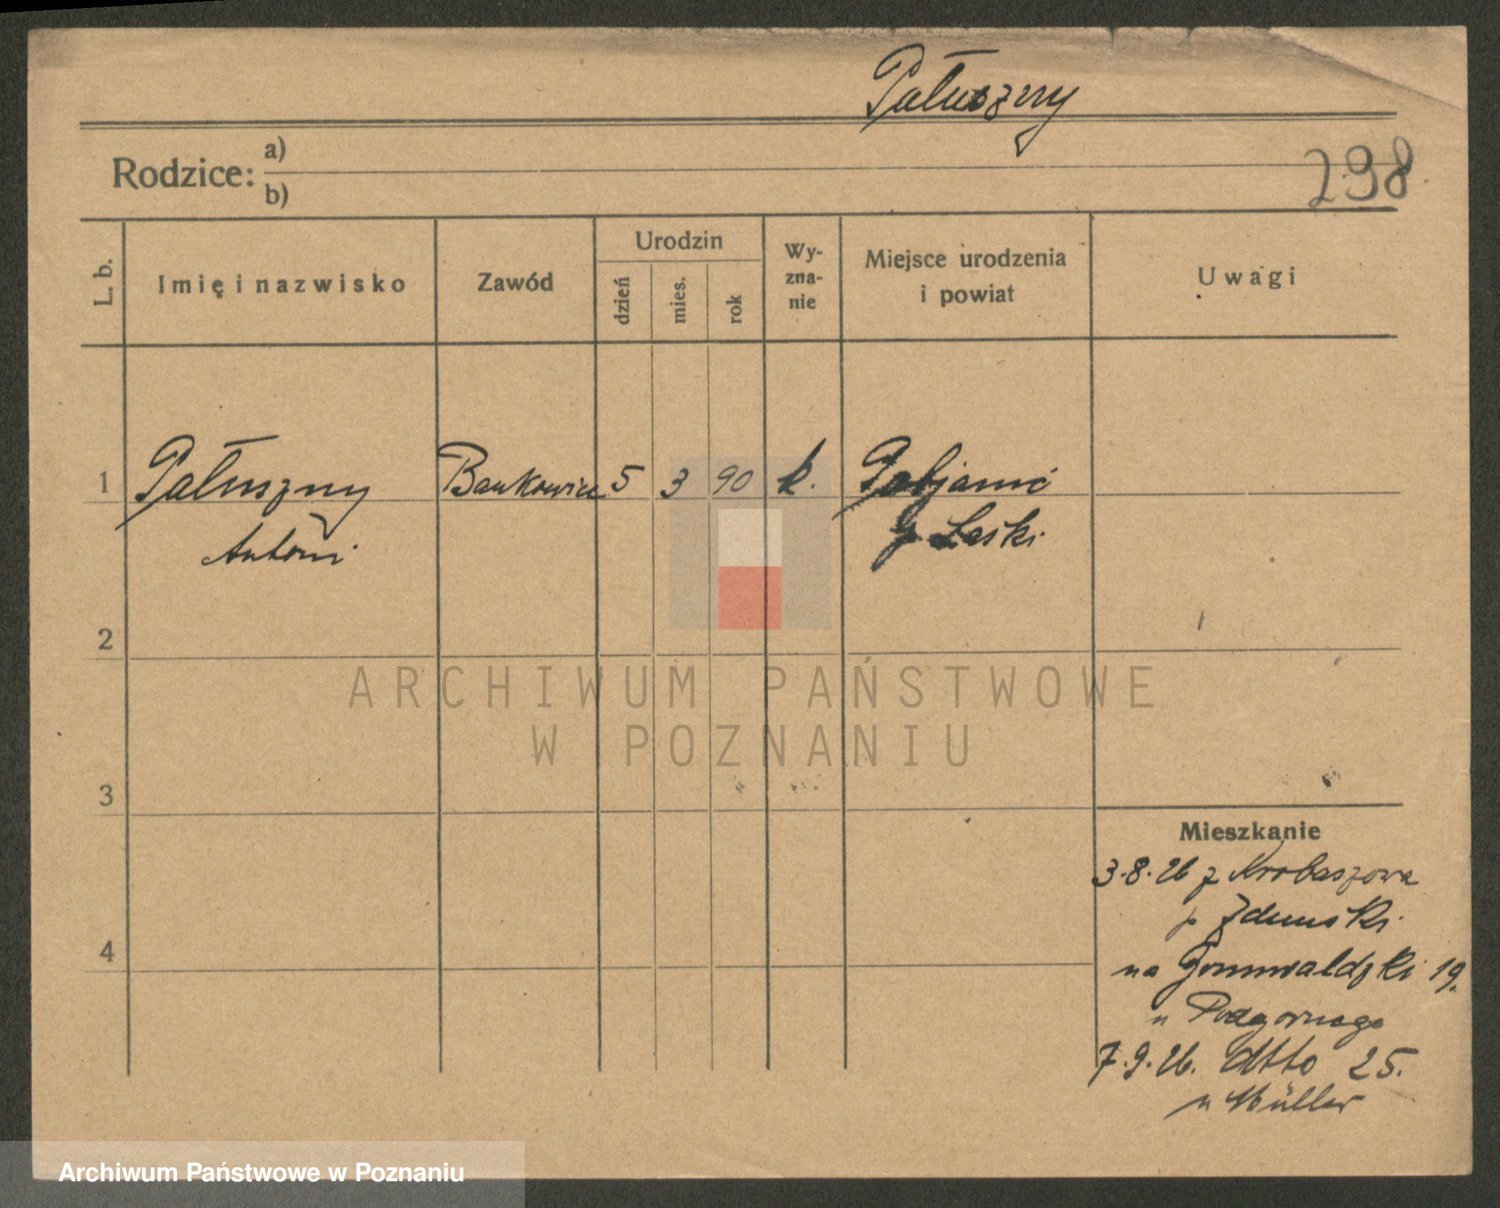 Pałuszny
Rodzice: a)
b)
298
L. b.
Imię i nazwisko
Zawód
Urodzin
dzień
mies.
rok
Wy-
zna-
nie
Miejsce urodzenia
i powiat
Uwagi
1 Pałuszny Bankowiec 5 3 90 k. Pabjanic
Antoni p Łaski
2
3
4
Mieszkanie
3.8.26 z
p
na Grunwaldzki 19.
u Podgornego
7.9.26. dtto 25.
u Müller
ARCHIWUM PAŃSTWOWE
W POZNANIU
Archiwum Państwowe w Poznaniu